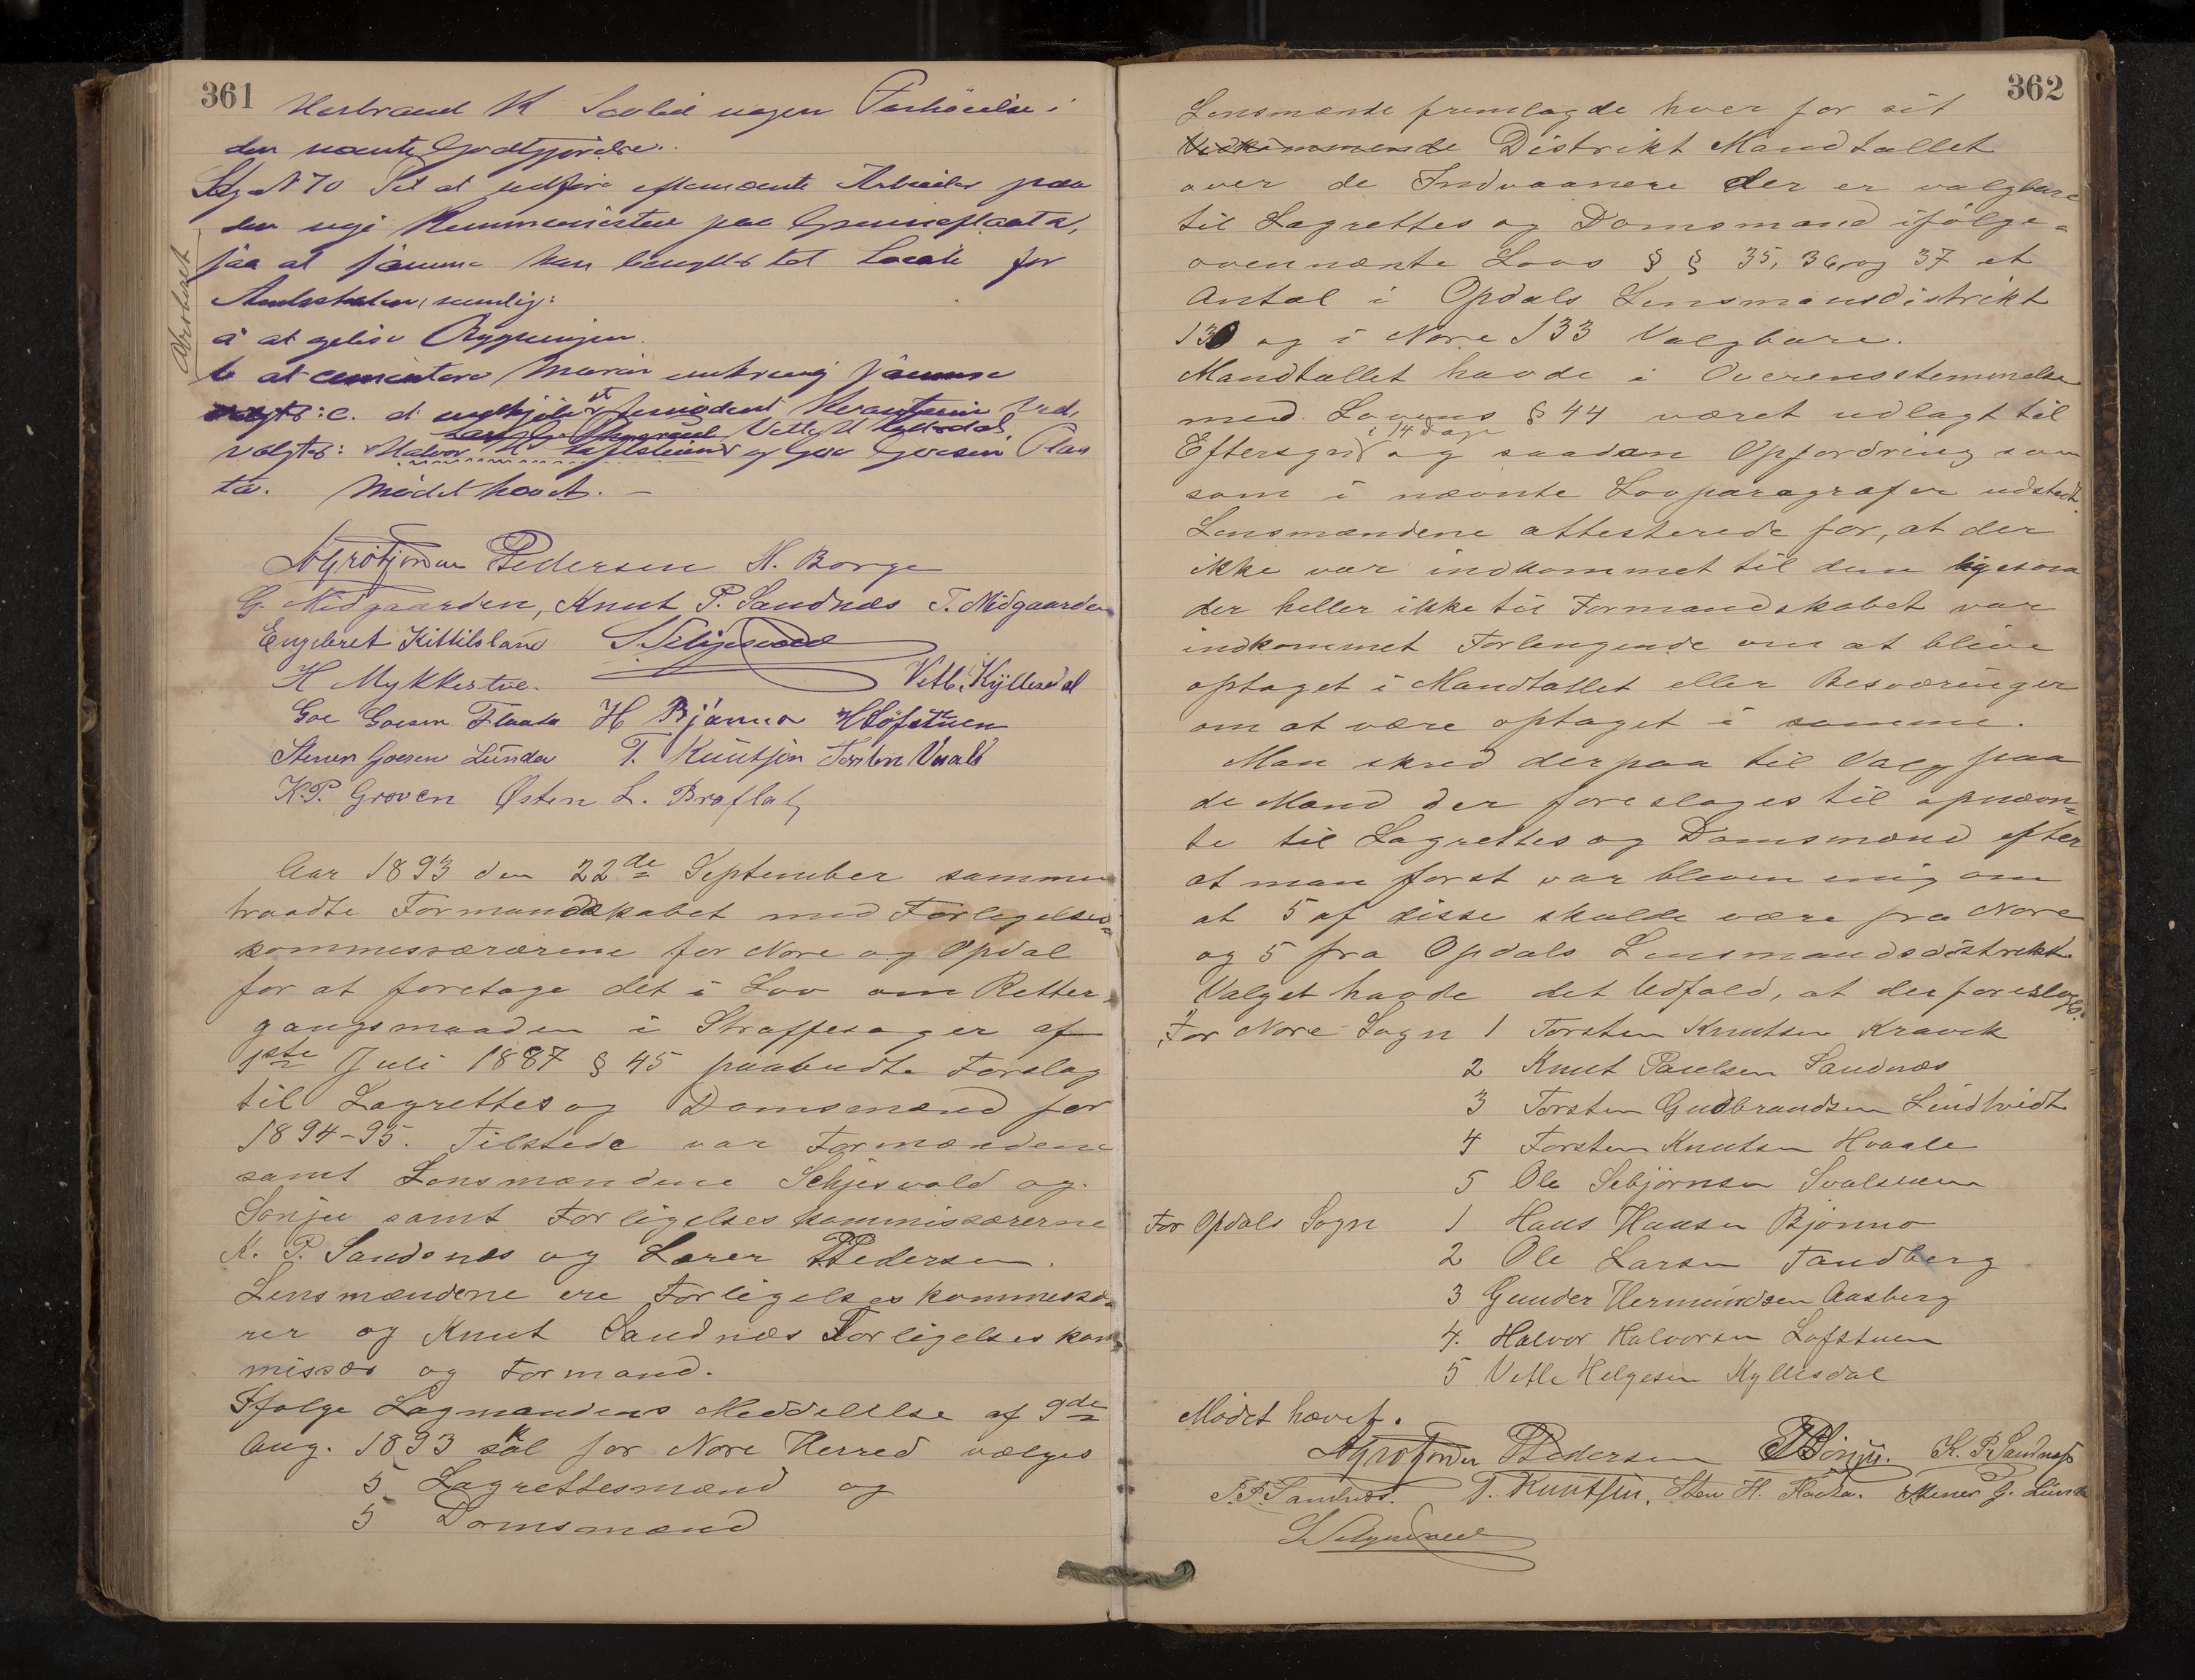 361
Herbrand K nogen Forhöielse i
den nævnte Godtgjörelse.
Sag N 70 at udföre eftenævnte Arbeider paa
den nye paa
saa at samme kan til Locale for
nemlig:
a at Bygningen
b at cementere Muren omkring samme
c. at Ved.
valgtes: Halvor H Løfstuen og Goe Goesen Flaa
ta. Mödet hævet. —
Pedersen H. Borge
G. Midgaarden, Knut P. Sandnæs T. Midgaarden
Engebret Kittilsland
H Mykkestue. Vetle Kyllesdal
Goe Goesen Flaata H Bjönno H Löfstuen
Stener Goesen Lunda T. Knutsen Torsten Vaale
K.P. Groven Østen L. Braflat
Aar 1893 den 22de September sammen
traadte Formandskabet med Forligelses-
kommissærerene for Nore og Opdal
for at foretage det i Lov om Retter
gangsmaaden i Straffesager af
1ste Juli 1887 § 45 paabudte Forslag
til Lagrettes og Domsmænd for
1894-95. Tilstede var Formændene
samt Lensmændene Seljesvold og
Sönju samt Forligelseskommissærerne
K. P. Sandsnæs og Lærer P Pedersen.
Lensmændene ere Forligelseskommissæ-
rer og Knut Sandnæs Forligelseskom
missær og Formand.
Ifølge Lagmandens Meddelelse af 9de
Aug. 1893 skal for Nore Herred vælges
5 Lagrettesmænd og
5 Domsmænd
362
Lensmænde fremlagde hver for sit
Vedkommende Distrikt Mandtallet
over de Indvaanere der er valgbare
til Lagrettes og Domsmænd ifölge-
ovennænte Lovs § § 35, 36 og 37 et
Antal i Opdals Lensmansdistrikt
130 og i Nore 133 Valgbare.
Mandtallet havde i Overensstemmelse
med Lovens § 44 været udlagt til
Eftersyn i 14 Dage og saadan Opfordring som
som i nævnte Lovparagrafer udstedt.
Lensmændene attesterede for, at der
ikke var indkommet til dem ligesom
der heller ikke til Formandskabet var
indkommet Forlangende om at blive
optaget i Mandtallet eller Besværinger
om at være optaget i samme.
Man skred derpaa til Valg paa
de Mænd der foreslages til opnævn=
te til Lagrettes og Domsmænd efter
at man först var bleven enig om
at 5 af disse skulde være fra Nore
og 5 fra Opdals Lensmandsdistrikt.
Valget havde det Udfald, at der foresloges:
For Nore Sogn 1 Torsten Knutsen Kravik
2 Knut Paulsen Sandnæs
3 Torsten Gudbrandsen Lindtvidt
4 Torsten Knutsen Hvaale
5 Ole Sebjörnsen
For Opdals Sogn 1 Hans Hansen Bjönno
2 Ole Larsen Tandberg
3 Gunder Hermundsen Aasberg
4. Halvor Halvorsen Lofstuen
5 Vetle Helgesen Kyllesdal
Mödet hævet.
Pedersen Sönju. K. P. Sandnæs
T. P. Sandnæs. T. Knutsen, Sten H. Flaata. Stener G. Lunda